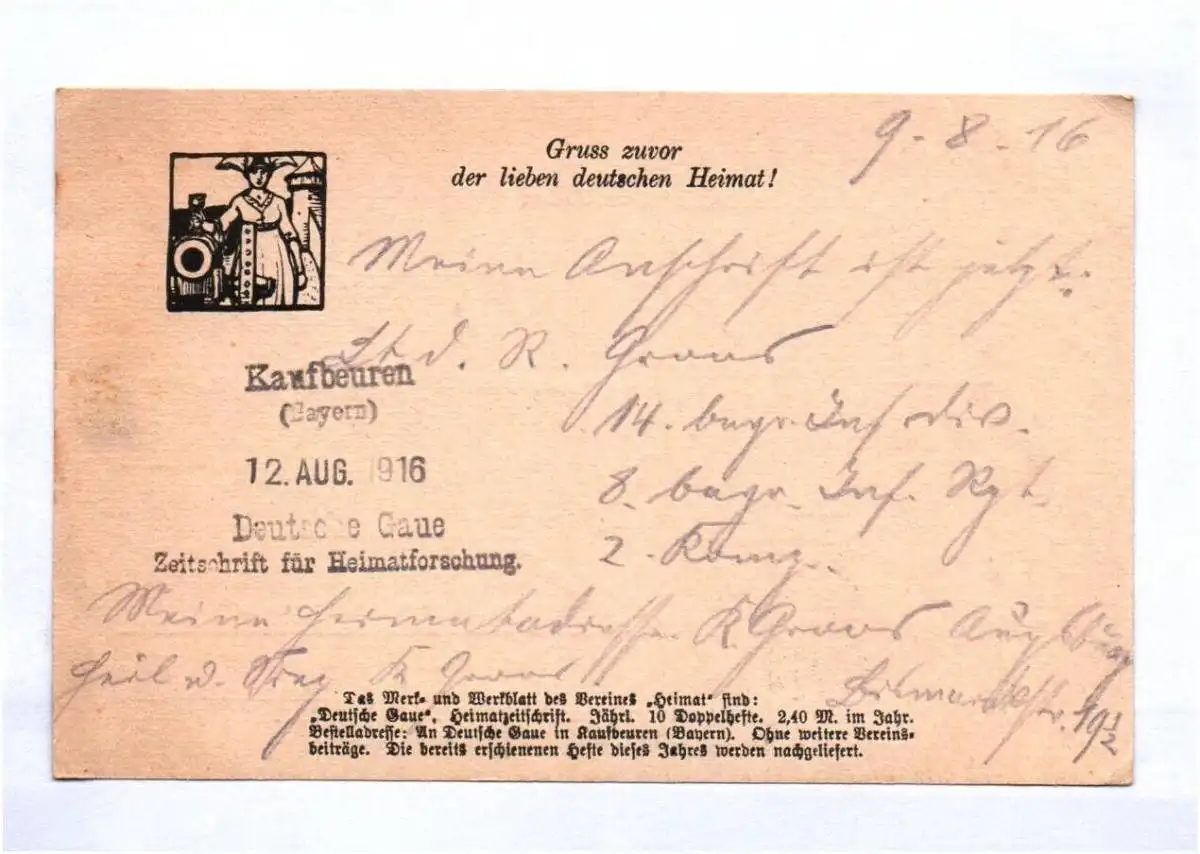 9-8-16
Gruss zuvor
der lieben deutschen Heimat!
Meine Anschrift ist jetzt:
Lt d. R. Graas
14. bayr. Inf. div.
8. bayr. Inf. Rgt.
2. Komp.
Kaufbeuren
(Bayern)
12. AUG. 1916
Deutsche Gaue
Zeitschrift für Heimatforschung.
Meine Heimatadresse K. Graas Augsburg
Bismarckstr. 19 1/2
Heil u. Sieg K Graas
Das Merk- und Werkblatt des Vereines „Heimat“ sind:
„Deutsche Gaue“, Heimatzeitschrift. Jährl. 10 Doppelhefte. 2,40 M. im Jahr.
Bestelladresse: An Deutsche Gaue in Kaufbeuren (Bayern). Ohne weitere Vereins-
beiträge. Die bereits erschienenen Hefte dieses Jahres werden nachgeliefert.